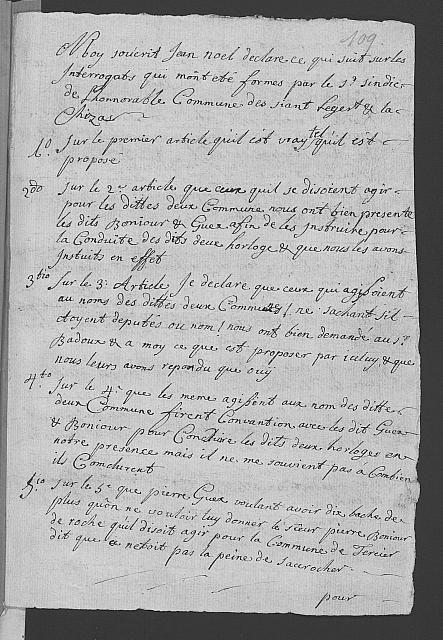 109
Noy souicrit Jean noel declare ce, qui suit sur les
Interrogats qui mont eté formes par le Sr. sindic
de Lhonnorable Commune des siant Legert & la
Chizas
1o. Sur le premier article quil est vray tel quil est
proposé
2do Sur le 2e article que ceux quil se disoient agir
pour les dittes deux Commune nous ont bien presente
les dits Boniour & Guex afin de les Instruire pour
la Conduite des dits deux horloge & que nous les avons
Instuits en effet
3tio Sur le 3e Article Je declare que ceux qui agissoient
au noms des dittes deux Communes / ne sachant sil
etoyent deputés ou nom / nous ont bien demandé au Sr.
Badoux & a moy ce que est proposer par iceluy & que
nous leurs avons repondu que ouy
4to Sur le 4e que les meme agissent aux nom des ditte
deux Commune firent Convantion avec les dit Guex
& Boniour pour Conduire les dits deux horloges en
notre presence mais il ne me souvient pas à Combien
ils Comclurent
5to Sur le 5e que pierre Guex voulant avoir dix bache de
plus qu'on ne vouloir luy donner le sieur pierre Boniour
de roche qu'il disoit agir pour la Commune de Tercier
dit que ce netoit pas la peine de sacrocher
pour